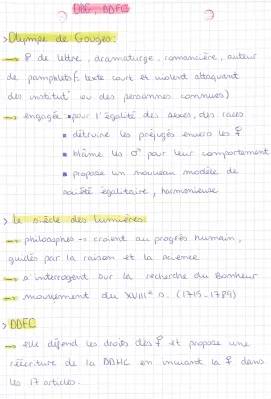 ODG, DDFC
> Olympe de Gouges :
→ ♀ de lettre, dramaturge, romancière, auteur
de pamphlets (= texte court et violent attaquant
des institut° ou des personnes connues)
→ engagée ▪ pour l'égalité des sexes, des races
▪ détruire les préjugés envers les ♀
▪ blâme les ♂ pour leur comportement
▪ propose un nouveau modèle de
société égalitaire, harmonieuse
> Le siècle des lumières :
→ philosophes → croient au progrès humain,
guidés par la raison et la science
→ s'interrogent sur la recherche du Bonheur
→ mouvement du XVIIIe s. (1715-1789)
> DDFC
→ elle défend les droits des ♀ et propose une
réécriture de la DDHC en incluant la ♀ dans
les 17 articles.